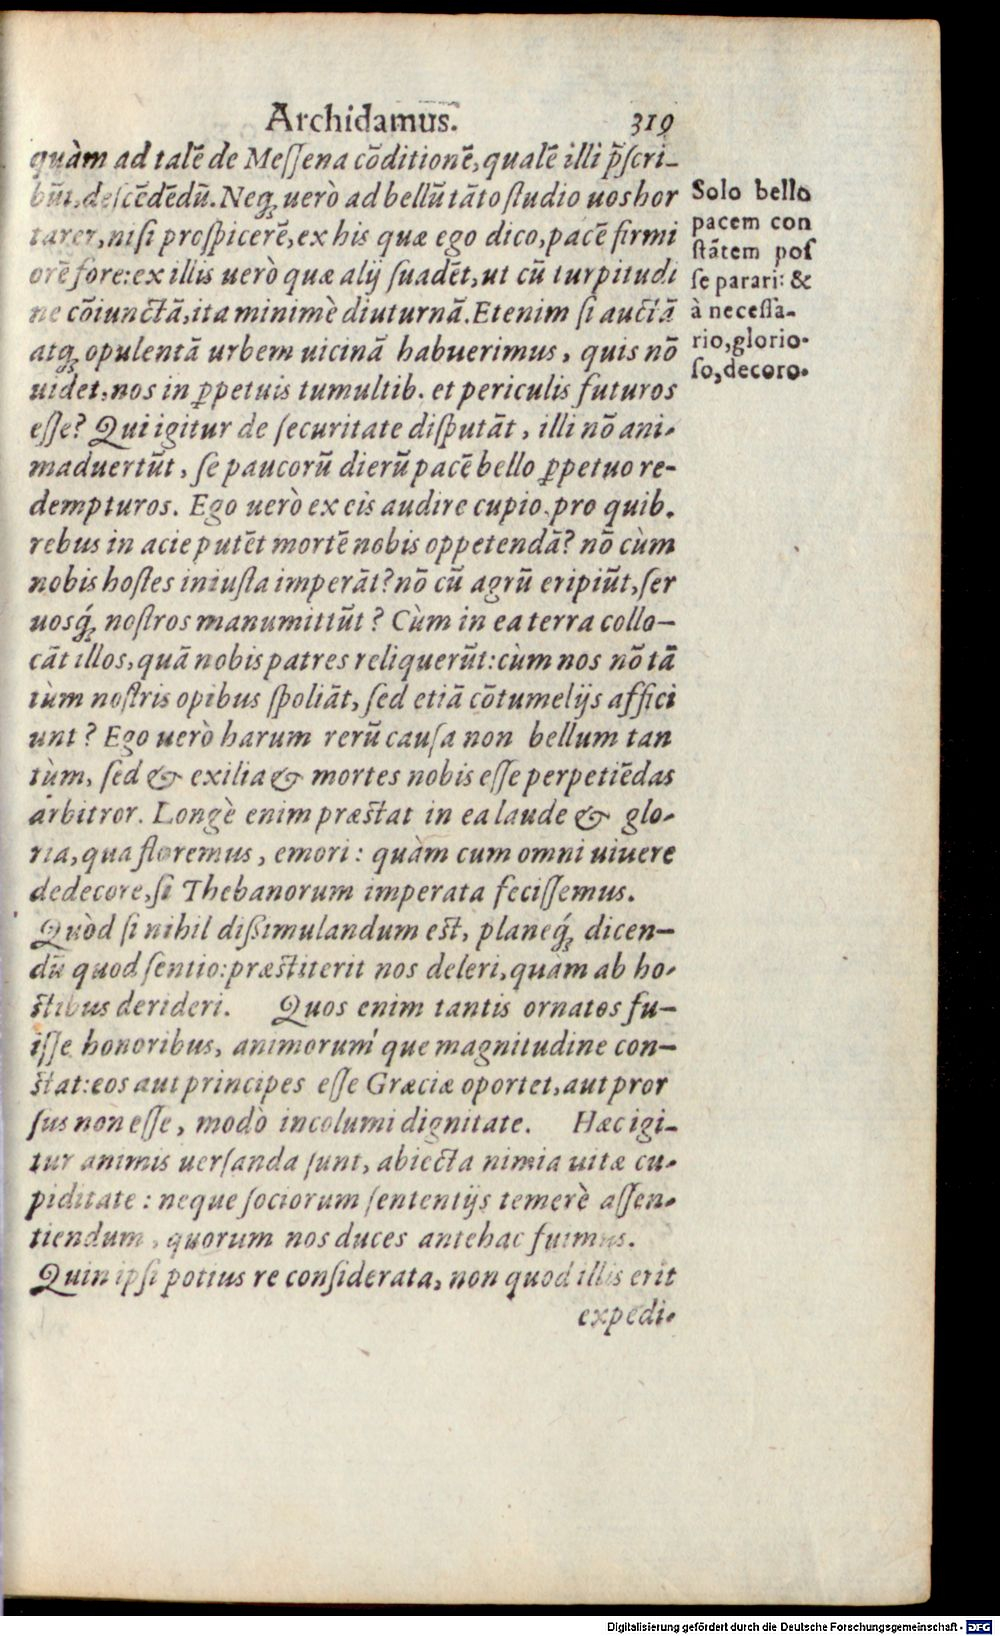 Archidamus. 319
quàm ad talē de Meſſena cōditionē, qualē illi p̄ſcri-
būt, deſcēdēdū. Neq; uerò ad bellū tāto ſtudio uos hor
tarer, niſi proſpicerē, ex his quæ ego dico, pacē firmi
orē fore: ex illis uerò quæ alij ſuadēt, ut cū turpitudi
ne cōiunctā, ita minimè diuturnā. Etenim ſi auctā
atq; opulentā urbem uicinā habuerimus, quis nō
uidet, nos in ꝑpetuis tumultib. et periculis futuros
eſſe? Qui igitur de ſecuritate diſputāt, illi nō ani-
maduertūt, ſe paucorū dierū pacē bello ꝑpetuo re-
dempturos. Ego uerò ex eis audire cupio, pro quib.
rebus in acie putēt mortē nobis oppetendā? nō cùm
nobis hoſtes iniuſta imperāt? nō cū agrū eripiūt, ſer
uosq́; noſtros manumittūt? Cùm in ea terra collo-
cāt illos, quā nobis patres reliquerūt: cùm nos nō tā
tùm noſtris opibus ſpoliāt, ſed etiā cōtumelijs affici
unt? Ego uerò harum rerū cauſa non bellum tan
tùm, ſed & exilia & mortes nobis eſſe perpetiēdas
arbitror. Longè enim præſtat in ea laude & glo-
ria, qua floremus, emori: quàm cum omni uiuere
dedecore, ſi Thebanorum imperata feciſſemus.
Quòd ſi nihil diſsimulandum eſt, planeq́; dicen-
dū quod ſentio: præſtiterit nos deleri, quàm ab ho-
ſtibus derideri. Quos enim tantis ornatos fu-
iſſe honoribus, animorum'que magnitudine con-
ſtat: eos aut principes eſſe Græciæ oportet, aut pror
ſus non eſſe, modò incolumi dignitate. Hæc igi-
tur animis uerſanda ſunt, abiecta nimia uitæ cu-
piditate: neque ſociorum ſententijs temerè aſſen-
tiendum, quorum nos duces antehac fuimus.
Quin ipſi potius re conſiderata, non quod illis erit
expedi-
Solo bello
pacem con
ſtātem poſ
ſe parari: &
à neceſſa-
rio, glorio-
ſo, decoro.
Digitalisierung gefördert durch die Deutsche Forschungsgemeinschaft - DFG